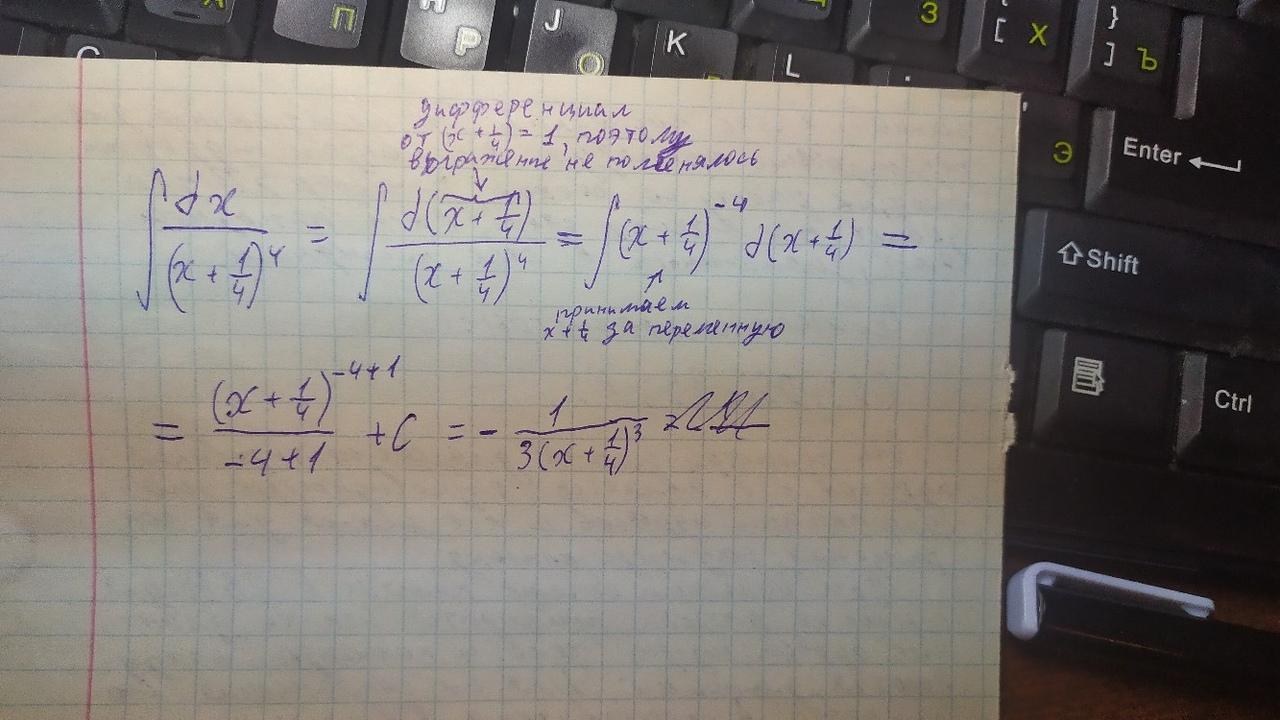 П
Н Р
J О
K
L
З
[ Х
} ] Ъ
Э
Enter
Shift
Ctrl
дифференциал
от (x + 1/4) = 1, поэтому
выражение не поменялось
∫ dx/(x + 1/4)^4 = ∫ d(x + 1/4)/(x + 1/4)^4 = ∫ (x + 1/4)^-4 d(x + 1/4) =
принимаем
x + 1/4 за переменную
= (x + 1/4)^-4+1/-4+1 + C = - 1/3(x + 1/4)^3